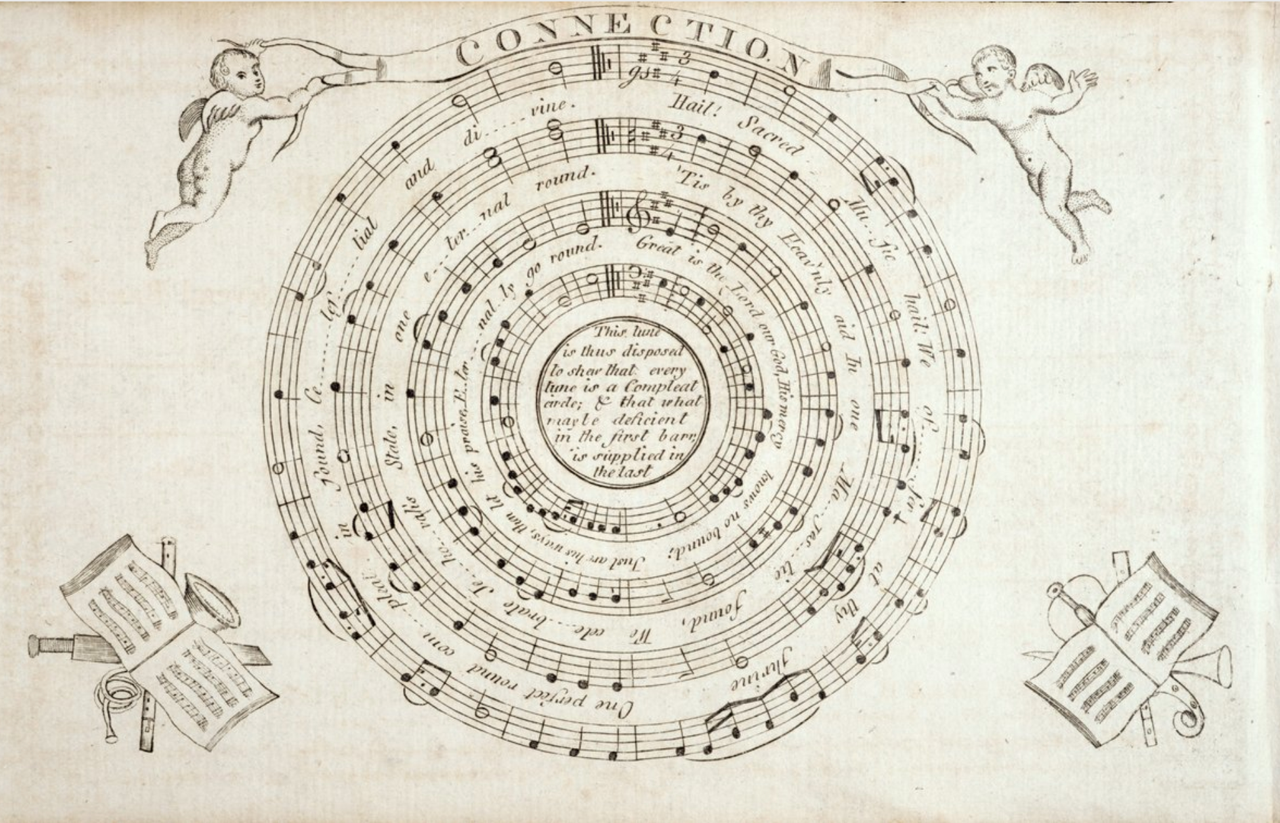 CONNECTION
Hail! Sacred Mu..sic hail. We of......fer at thy shrine One perfect round com...pleat in sound, Ce......les'......tial and di.....vine.
'Tis by thy Heav'nly aid In one Ma...jes...tic sound, We cele...brate Je...ho...vahs Stole, in one e...ter...nal round.
Great is the Lord our God, His mercy knows no bound; Just are his ways, then let his praise, E..ter...nal..ly go round.
This tune
is thus disposed
to shew that every
tune is a Compleat
circle; & that what
may be deficient
in the first barr,
is supplied in
the last